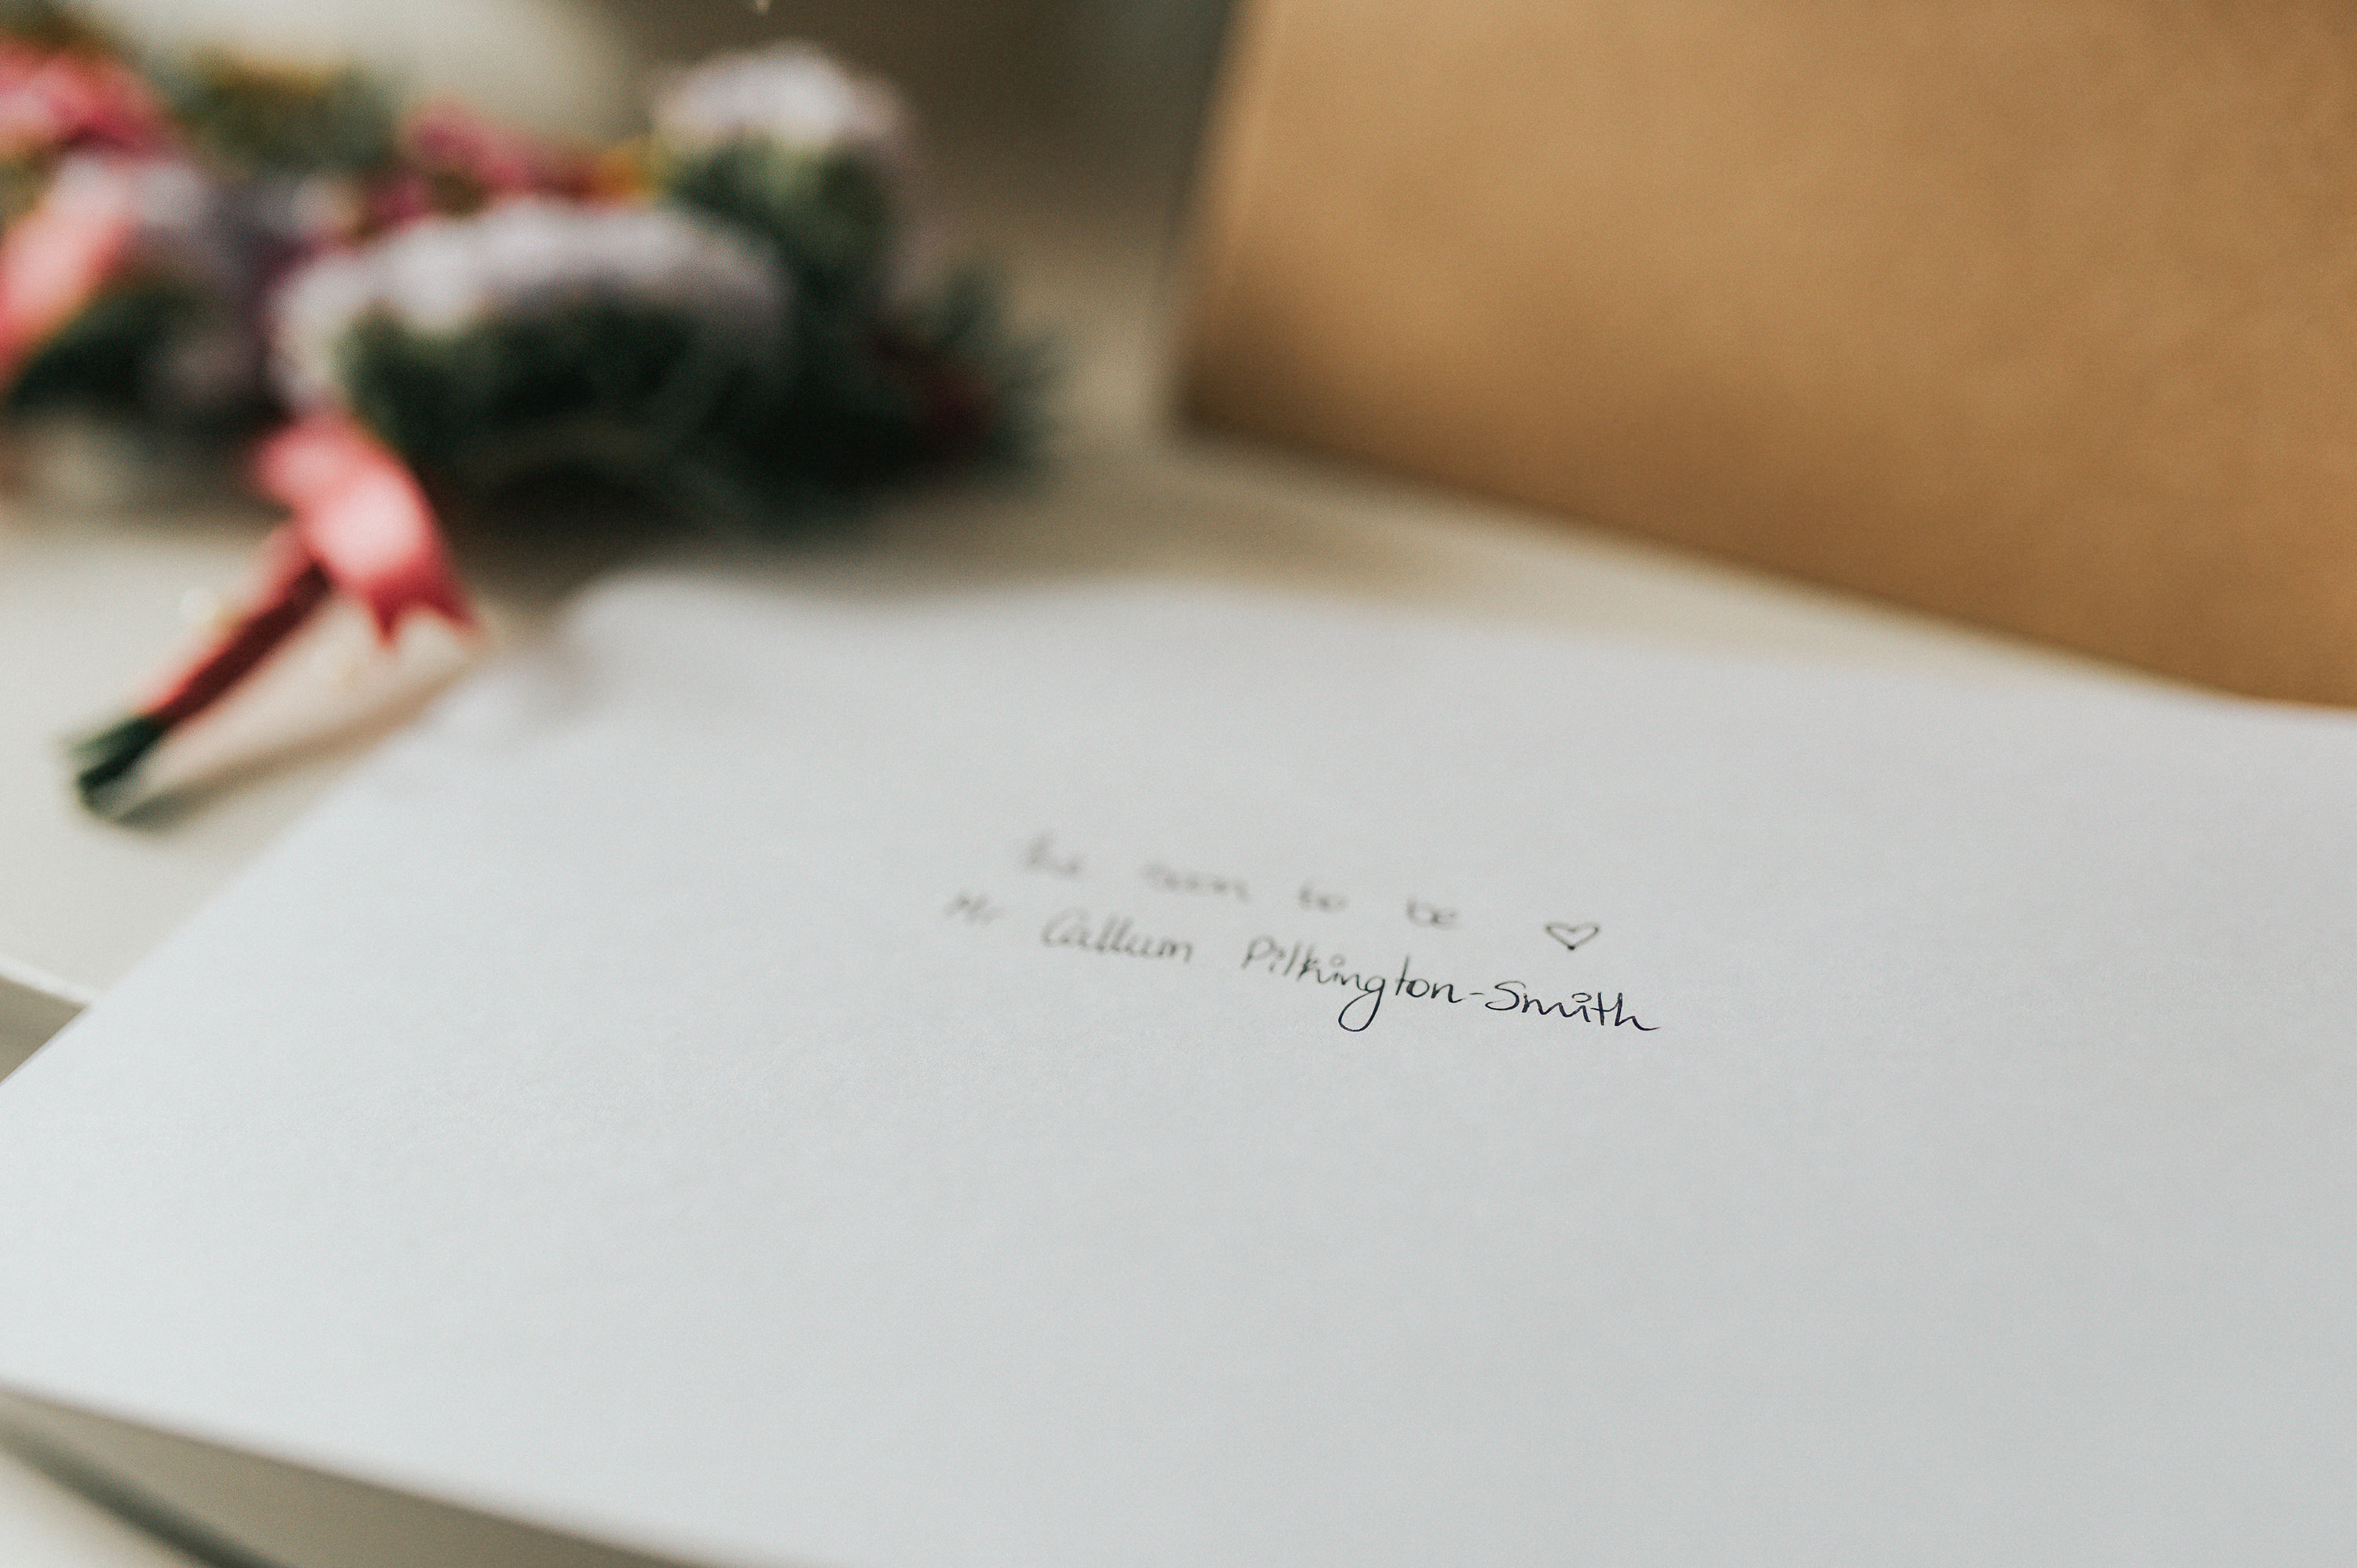 the soon to be ♡
Mr Callum Pilkington-Smith